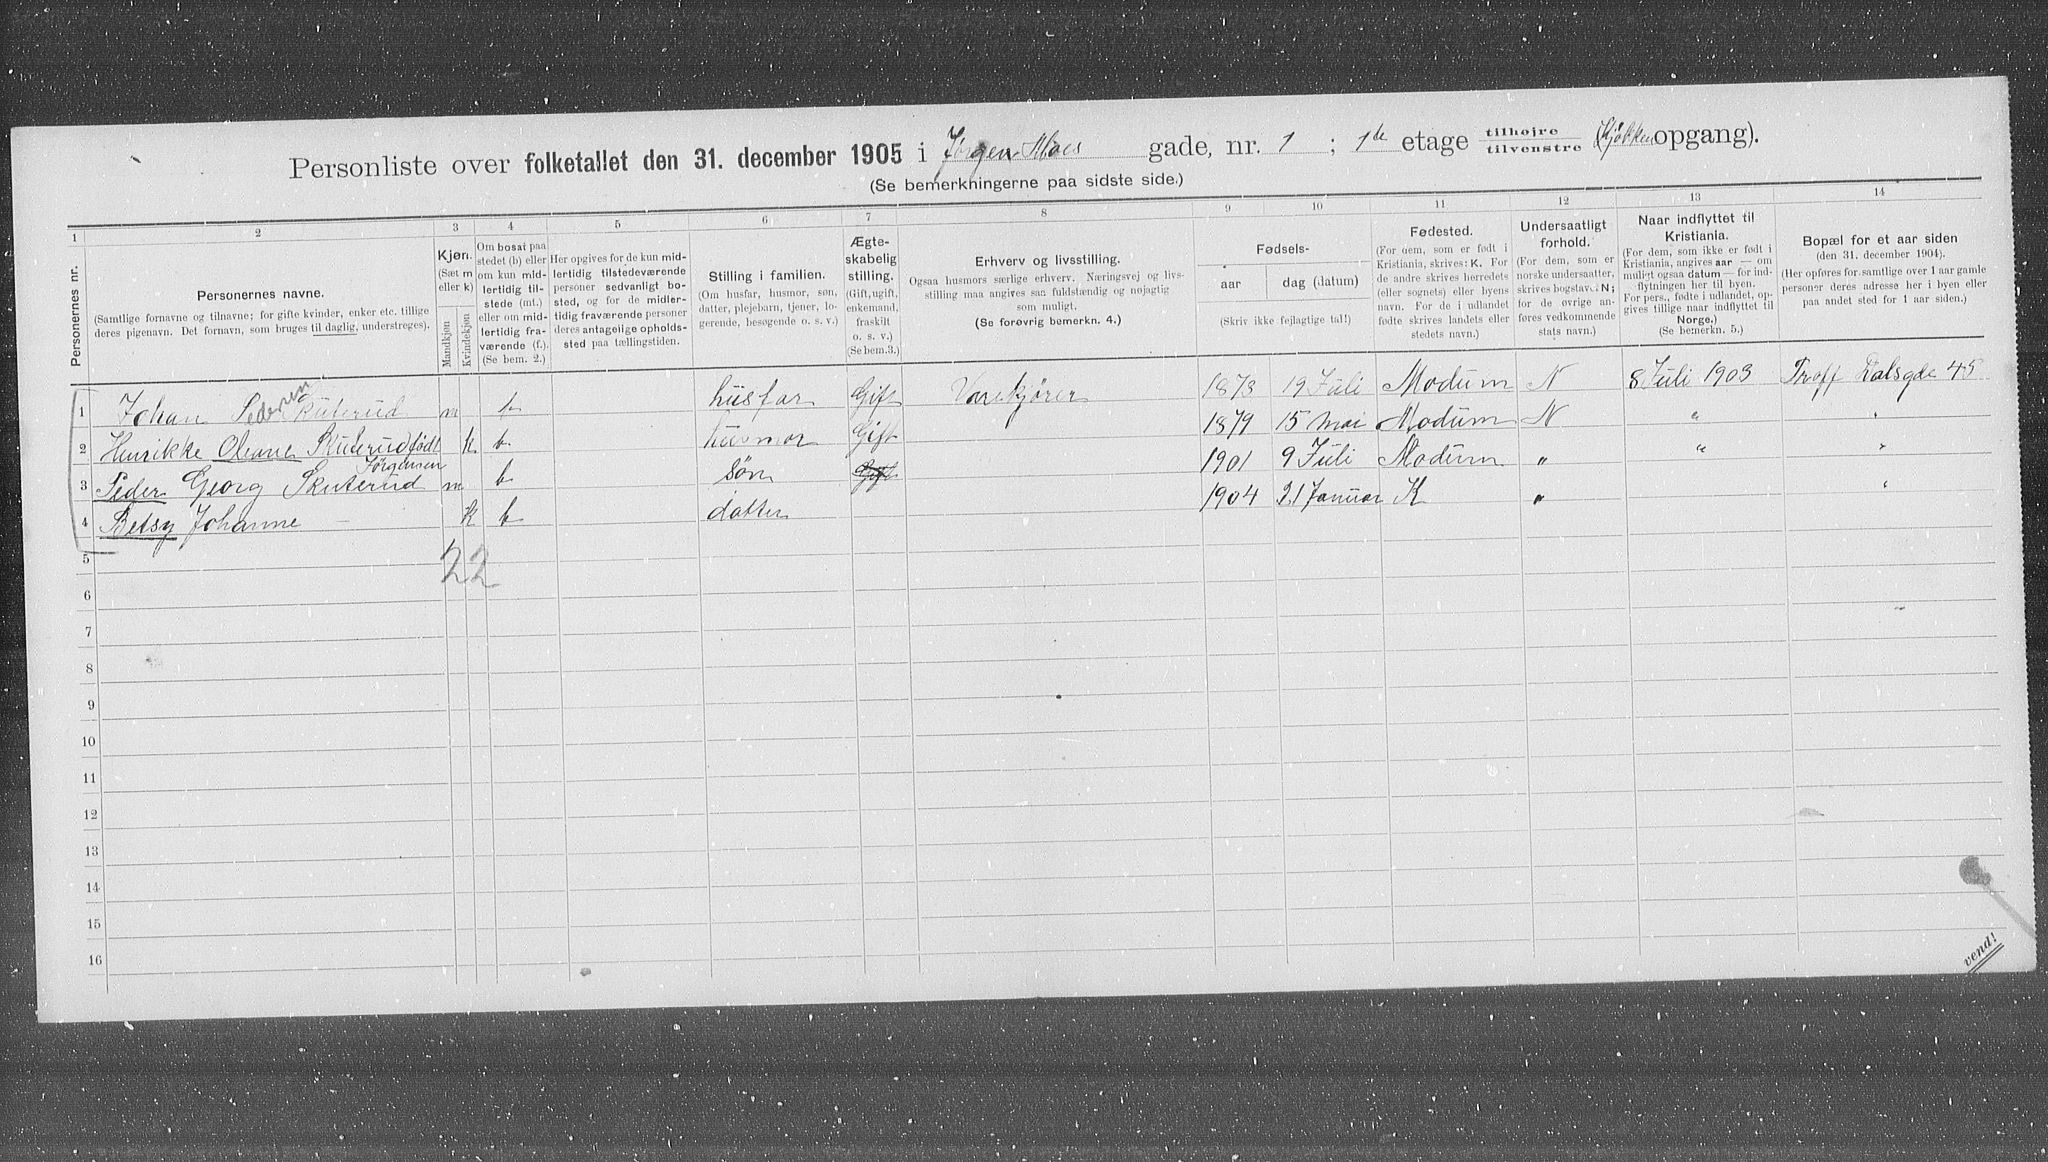 Personliste over folketallet den 31. december 1905 i Jørgen Moes gade, nr. 1 ; 1ste etage tilhøjre tilvenstre (Kjøkkenopgang).
(Se bemerkningerne paa sidste side.)
1 2 3 4 5 6 7 8 9 10 11 12 13 14
Personernes nr.
Personernes navne.
(Samtlige fornavne og tilnavne; for gifte kvinder, enker etc. tillige
deres pigenavn. Det fornavn, som bruges til daglig, understreges).
Kjøn.
(Sæt m
eller k)
Mandkjøn
Kvindekjøn
Om bosat paa
stedet (b) eller
om kun mid-
lertidig til-
stede (mt.)
eller om mid-
lertidig fra-
værende (f.).
(Se bem. 2.)
Her opgives for de kun mid-
lertidig tilstedeværende
personer sedvanligt bo-
sted, og for de midler-
tidig fraværende personer
deres antagelige opholds-
sted paa tællingstiden.
Stilling i familien.
(Om husfar, husmor, søn,
datter, plejebarn, tjener, lo-
gerende, besøgende o. s. v.)
Ægte-
skabelig
stilling.
(Gift, ugift,
enkemand,
fraskilt
o. s. v.)
(Se bem.3.)
Erhverv og livsstilling.
Ogsaa husmors særlige erhverv. Næringsvej og livs-
stilling maa angives saa fuldstændig og nøjagtig
som muligt.
(Se forøvrig bemerkn. 4.)
Fødsels-
aar dag (datum)
(Skriv ikke fejlagtige tal!)
Fødested.
(For dem, som er født i
Kristiania, skrives: K. For
de andre skrives herredets
(eller sognets) eller byens
navn. For de i udlandet
fødte skrives landets eller
stedets navn.)
Undersaatligt
forhold.
(For dem, som er
norske undersaatter,
skrives bogstav: N;
for de øvrige an-
føres vedkommende
stats navn.)
Naar indflyttet til
Kristiania.
(For dem, som ikke er født i
Kristiania, angives aar — om
muligt ogsaa datum — for ind-
flytningen her til byen.
For pers., fødte i udlandet, op-
gives tillige naar indflyttet til
Norge.)
(Se bemerkn. 5.)
Bopæl for et aar siden
(den 31. december 1904).
(Her opføres for samtlige over 1 aar gamle
personer deres adresse her i byen eller
paa andet sted for 1 aar siden.)
1 Johan Pedersen Skuterud m b husfar Gift Varekjører 1873 19 Juli Modum N 8 Juli 1903 Proff Dalsgde 45
2 Henrikke Oleane Skuterud født Jørgensen k. b husmor Gift 1879 15 Mai Modum N " "
3 Peder Georg Skuterud m b søn Gift 1901 9 Juli Modum " " "
4 Betsy Johanne — k b datter 1904 21 Januar K " "
5
22
6
7
8
9
10
11
12
13
14
15
16
vend!